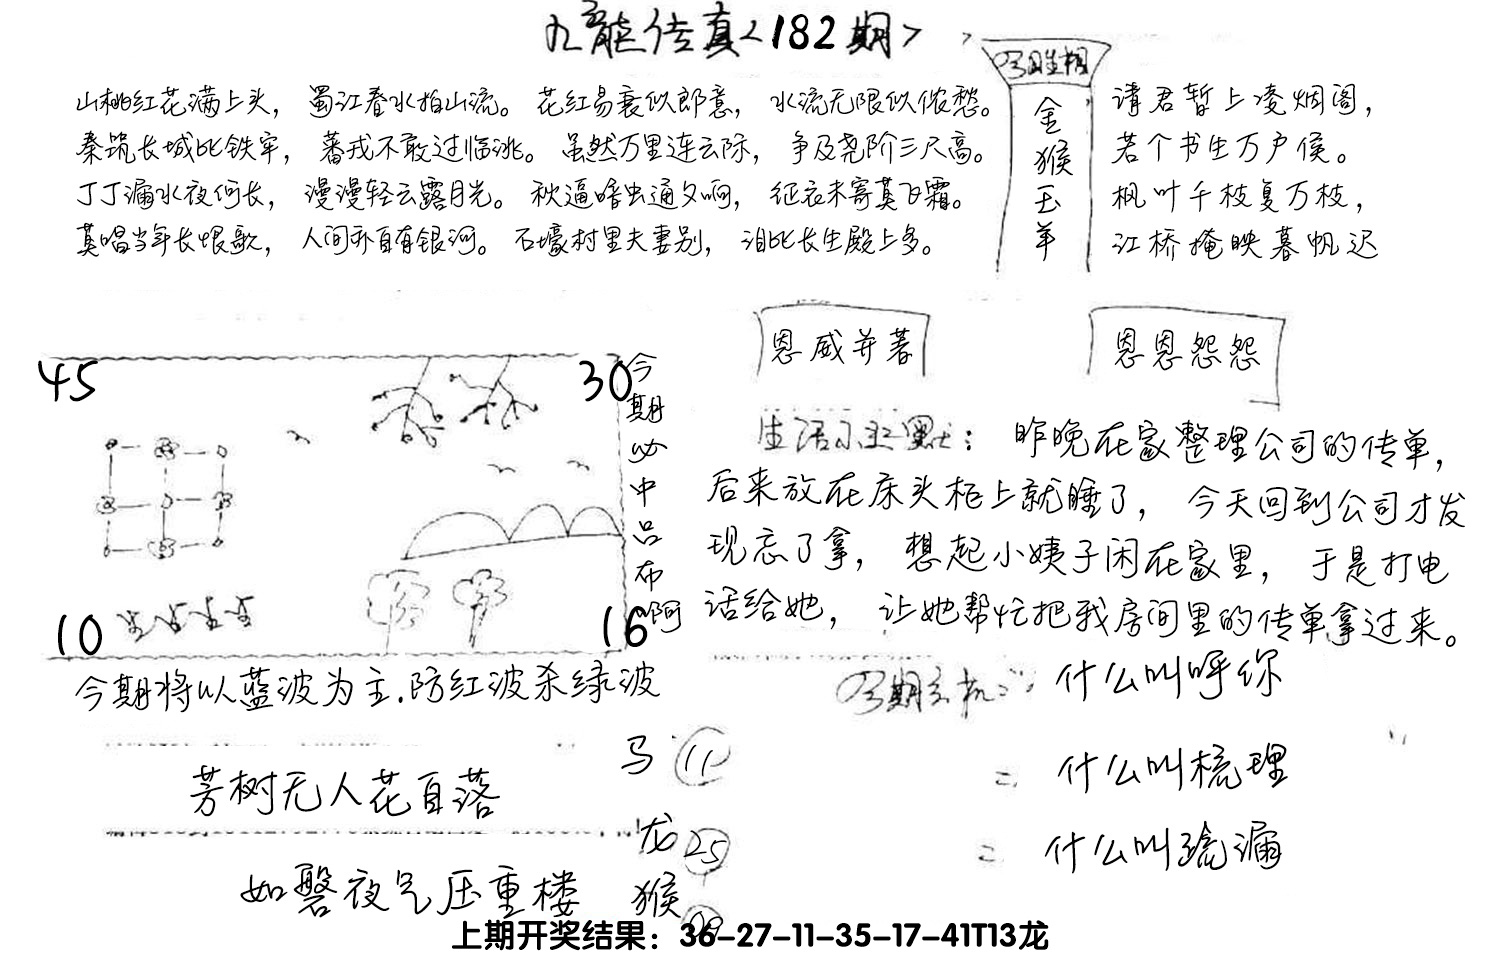 九龙传真<182期>
山桃红花满上头，蜀江春水拍山流。花红易衰似郎意，水流无限似侬愁。
秦筑长城比铁牢，蕃戎不敢过临洮。虽然万里连云际，争及尧阶三尺高。
丁丁漏水夜何长，漫漫轻云露月光。秋逼暗虫通夕响，征衣未寄莫飞霜。
莫唱当年长恨歌，人间亦自有银河。石壕村里夫妻别，泪比长生殿上多。
金猴玉羊
请君暂上凌烟阁，
若个书生万户侯。
枫叶千枝复万枝，
江桥掩映暮帆迟
恩威并著
恩恩怨怨
45
30
10
16
今期必中吕布啊
今期将以蓝波为主.防红波杀绿波
生活小幽默：昨晚在家整理公司的传单，
后来放在床头柜上就睡了，今天回到公司才发
现忘了拿，想起小姨子闲在家里，于是打电
话给她，让她帮忙把我房间里的传单拿过来。
今期玄机：什么叫呼你
什么叫梳理
什么叫疏漏
芳树无人花自落
如磬夜气压重楼
马 11
龙 25
猴 09
上期开奖结果：36-27-11-35-17-41T13龙